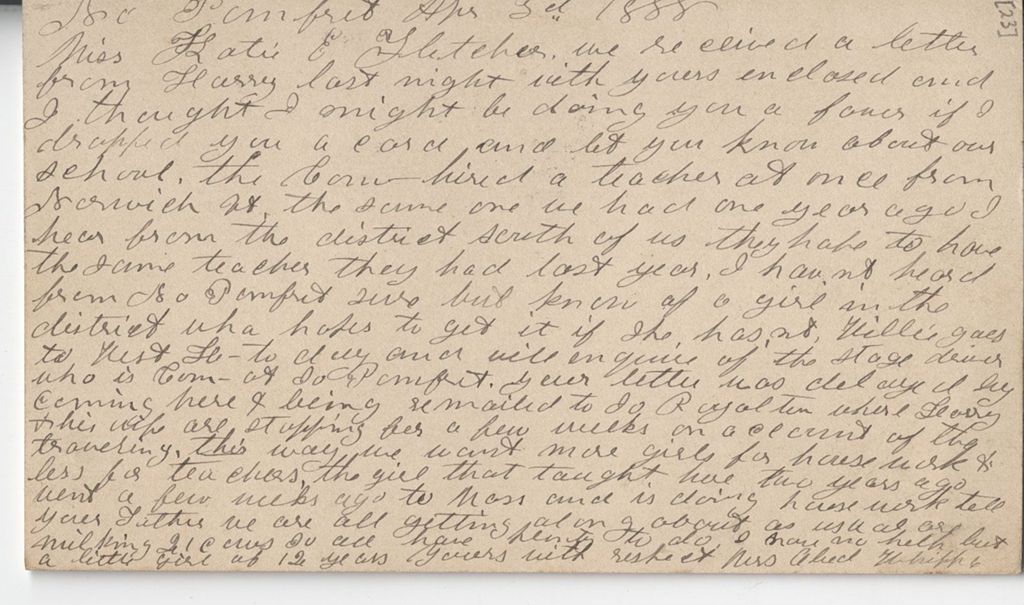 No Pomfret Apr 3d 1888
[23]
Miss Katie E Fletcher, we received a letter
from Harry last night with yours enclosed and
I thought I might be doing you a favor if I
dropped you a card and let you know about our
school. the Com- hired a teacher at once from
Norwich Vt, the same one we had one year ago I
hear from the district south of us they hope to have
the same teacher they had last year. I hav,nt heard
from No Pomfret sure but know of a girl in the
district who hopes to get it if she has,nt. Willie goes
to West H- to day and will enquire of the stage driver
who is Com- at So Pomfret. your letter was delayed by
coming here & being remailed to So Royalton where Harry
& his wife are stopping for a few weeks on account of the
traveling. this way we want more girls for house work &
less for teachers, the girl that taught here two years ago
went a few weeks ago to Mass and is doing house work tell
your Father we are all getting along about as usual are
milking 21 cows so all have plenty to do I have no help but
a little girl of 12 years yours with respect Mrs Whipple